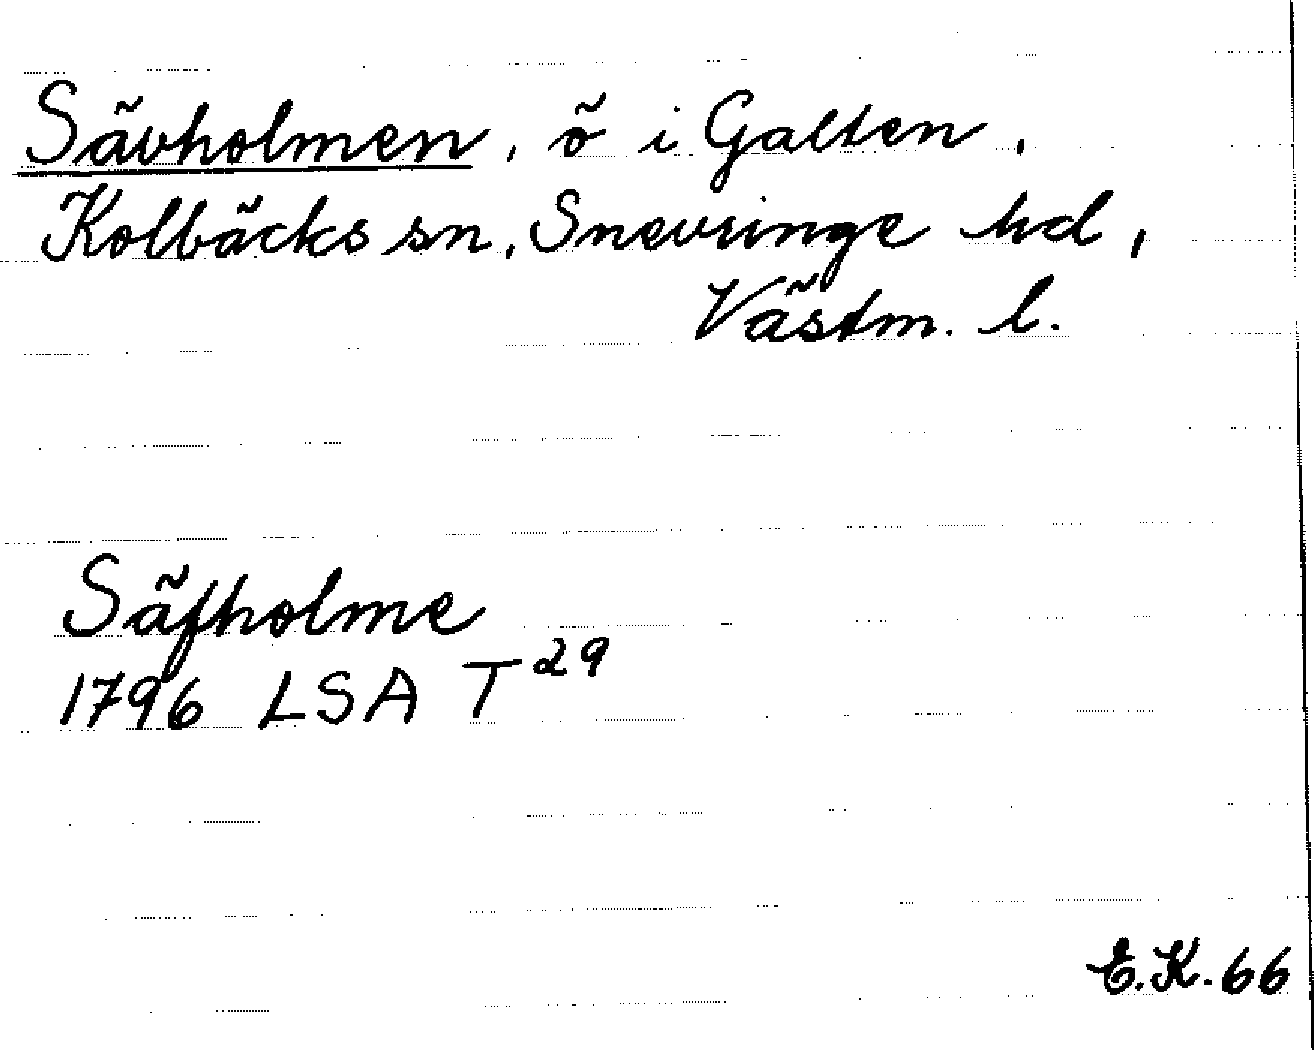 Sävholmen, ö i Galten,
Kolbäcks sn, Snevringe hd,
Västm. l.
Säfholme
1796 LSA T 29
E.K. 66